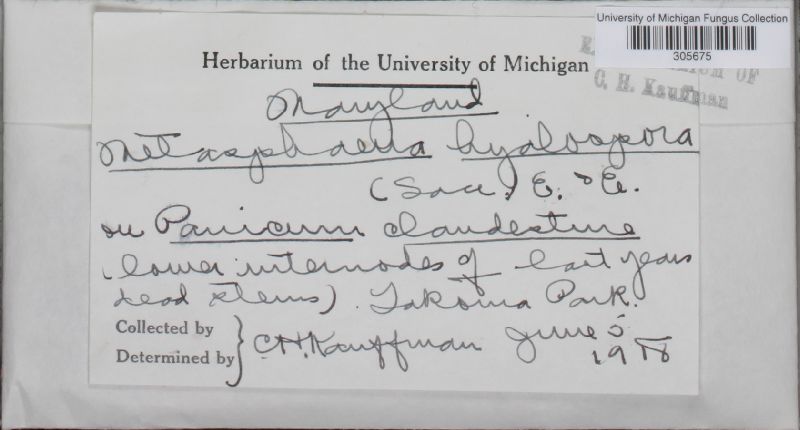 University of Michigan Fungus Collection
305675
OF
C. H. Kauffman
Herbarium of the University of Michigan
Maryland
Metasphaeria hyalospora
(Sacc.) E. & E.
on Panicum clandestine
(lower internodes of last years
dead stems). Takoma Park.
Collected by
Determined by
C.H. Kauffman June 5
1918